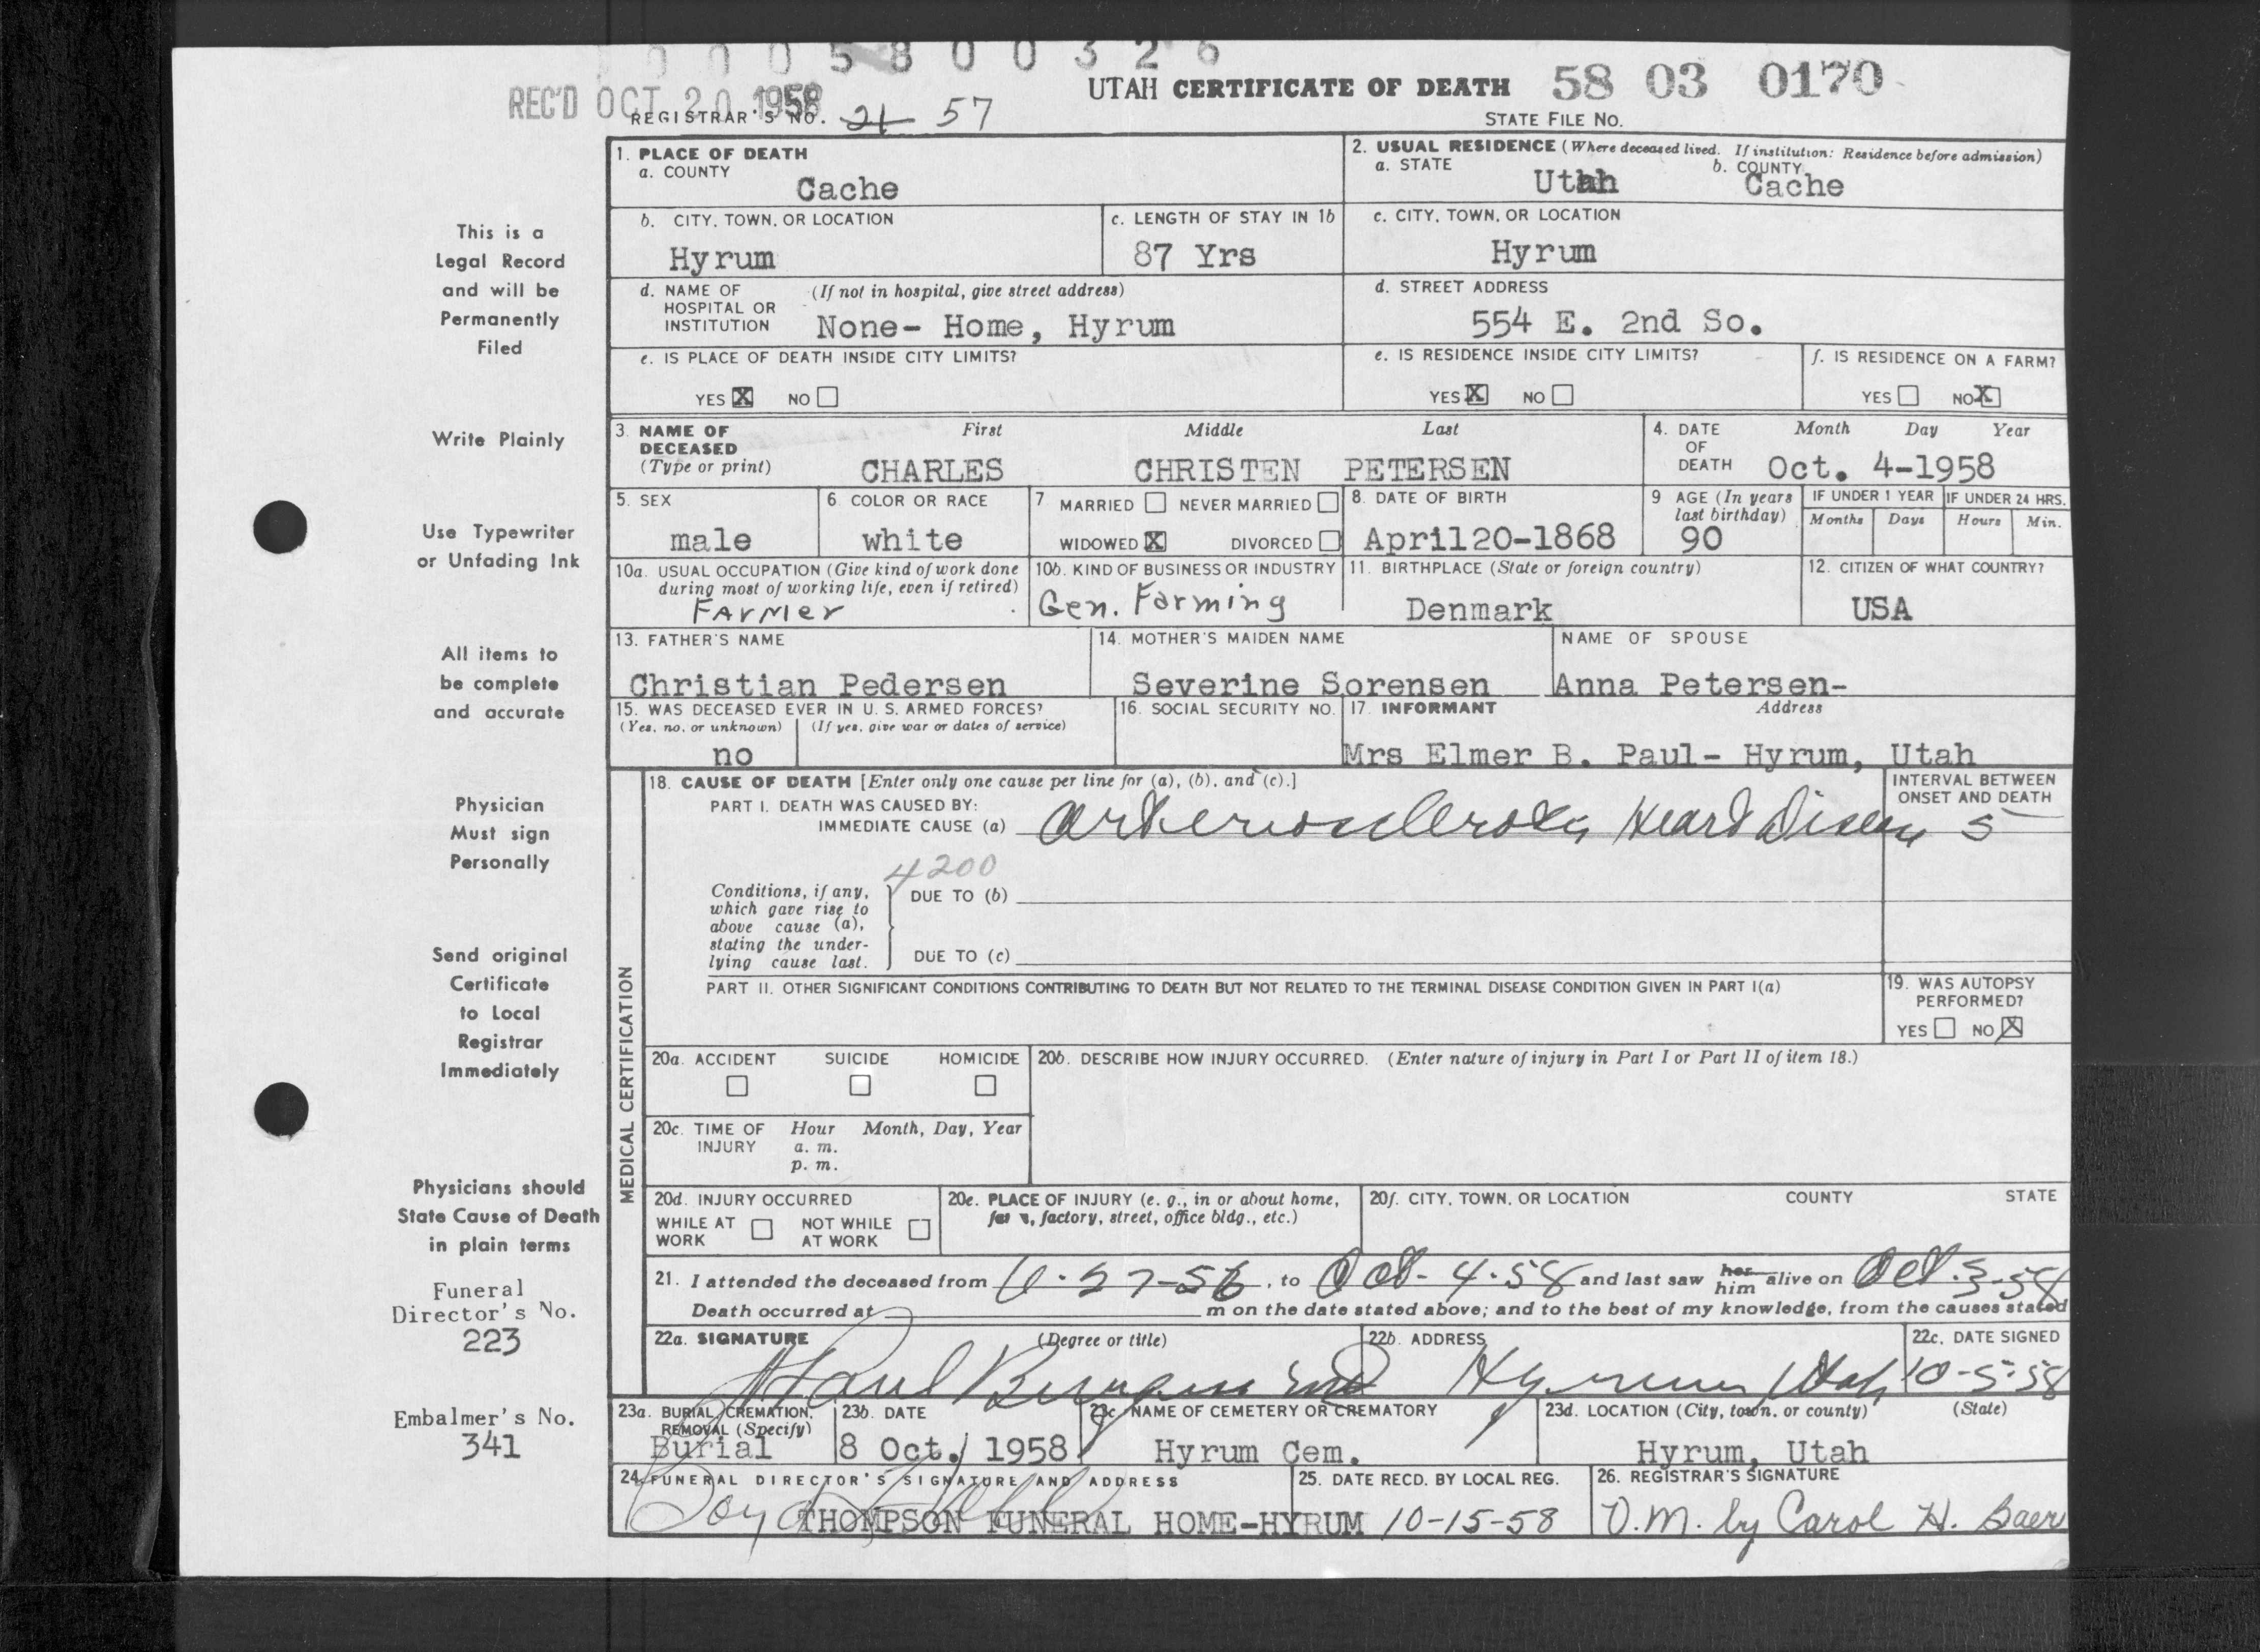 0 0 0 5 8 0 0 3 2 6
REC'D OCT 20 1958
UTAH CERTIFICATE OF DEATH 58 03 0170
REGISTRAR'S NO. 21 57
STATE FILE NO.
1. PLACE OF DEATH
a. COUNTY
Cache
2. USUAL RESIDENCE (Where deceased lived. If institution: Residence before admission)
a. STATE Utah b. COUNTY Cache
b. CITY, TOWN, OR LOCATION
Hyrum
c. LENGTH OF STAY IN 1b
87 Yrs
c. CITY, TOWN, OR LOCATION
Hyrum
d. NAME OF HOSPITAL OR INSTITUTION (If not in hospital, give street address)
None- Home, Hyrum
d. STREET ADDRESS
554 E. 2nd So.
e. IS PLACE OF DEATH INSIDE CITY LIMITS?
YES X NO
e. IS RESIDENCE INSIDE CITY LIMITS?
YES X NO
f. IS RESIDENCE ON A FARM?
YES NO X
3. NAME OF DECEASED (Type or print)
First Middle Last
CHARLES CHRISTEN PETERSEN
4. DATE OF DEATH Month Day Year
Oct. 4-1958
5. SEX
male
6. COLOR OR RACE
white
7 MARRIED NEVER MARRIED
WIDOWED X DIVORCED
8. DATE OF BIRTH
April20-1868
9 AGE (In years last birthday)
90
IF UNDER 1 YEAR
Months Days
IF UNDER 24 HRS.
Hours Min.
10a. USUAL OCCUPATION (Give kind of work done during most of working life, even if retired)
Farmer
10b. KIND OF BUSINESS OR INDUSTRY
Gen. Farming
11. BIRTHPLACE (State or foreign country)
Denmark
12. CITIZEN OF WHAT COUNTRY?
USA
13. FATHER'S NAME
Christian Pedersen
14. MOTHER'S MAIDEN NAME
Severine Sorensen
NAME OF SPOUSE
Anna Petersen-
15. WAS DECEASED EVER IN U. S. ARMED FORCES?
(Yes, no, or unknown) (If yes, give war or dates of service)
no
16. SOCIAL SECURITY NO.
17. INFORMANT Address
Mrs Elmer B. Paul- Hyrum, Utah
MEDICAL CERTIFICATION
18. CAUSE OF DEATH [Enter only one cause per line for (a), (b), and (c).]
PART I. DEATH WAS CAUSED BY:
IMMEDIATE CAUSE (a) Heart Disease 5
INTERVAL BETWEEN ONSET AND DEATH
4200
Conditions, if any,
which gave rise to
above cause (a),
stating the under-
lying cause last.
DUE TO (b)
DUE TO (c)
PART II. OTHER SIGNIFICANT CONDITIONS CONTRIBUTING TO DEATH BUT NOT RELATED TO THE TERMINAL DISEASE CONDITION GIVEN IN PART I(a)
19. WAS AUTOPSY PERFORMED?
YES NO X
20a. ACCIDENT SUICIDE HOMICIDE
20b. DESCRIBE HOW INJURY OCCURRED. (Enter nature of injury in Part I or Part II of item 18.)
20c. TIME OF INJURY Hour Month, Day, Year
a. m.
p. m.
20d. INJURY OCCURRED
WHILE AT WORK NOT WHILE AT WORK
20e. PLACE OF INJURY (e. g., in or about home, factory, street, office bldg., etc.)
20f. CITY, TOWN, OR LOCATION COUNTY STATE
21. I attended the deceased from , to Oct- 4-58 and last saw her him alive on Oct. 3-58
Death occurred at m on the date stated above; and to the best of my knowledge, from the causes stated
22a. SIGNATURE (Degree or title)
Paul Burgess MD
22b. ADDRESS
Hyrum Utah
22c. DATE SIGNED
10-5-58
23a. BURIAL, CREMATION, REMOVAL (Specify)
Burial
23b. DATE
8 Oct. 1958
23c. NAME OF CEMETERY OR CREMATORY
Hyrum Cem.
23d. LOCATION (City, town, or county) (State)
Hyrum, Utah
24. FUNERAL DIRECTOR'S SIGNATURE AND ADDRESS
THOMPSON FUNERAL HOME-HYRUM
25. DATE RECD. BY LOCAL REG.
10-15-58
26. REGISTRAR'S SIGNATURE
O.M. by Carol H. Baer
This is a
Legal Record
and will be
Permanently
Filed
Write Plainly
Use Typewriter
or Unfading Ink
All items to
be complete
and accurate
Physician
Must sign
Personally
Send original
Certificate
to Local
Registrar
Immediately
Physicians should
State Cause of Death
in plain terms
Funeral
Director's No.
223
Embalmer's No.
341